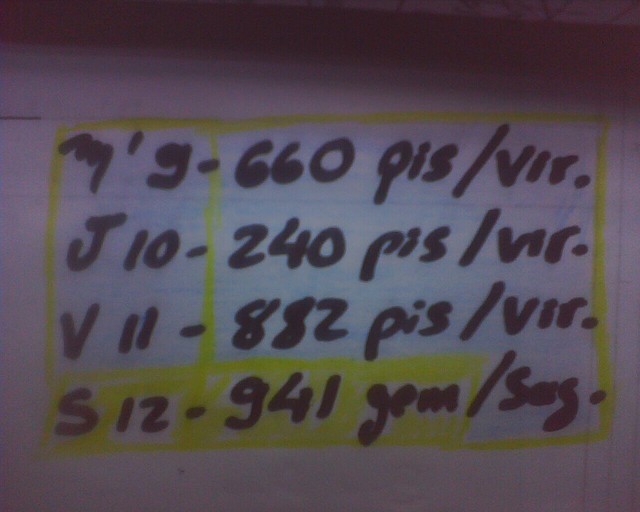 m'9 - 660 pis/vir.
J 10 - 240 pis/vir.
V 11 - 882 pis/vir.
S 12 - 941 gem/Sag.